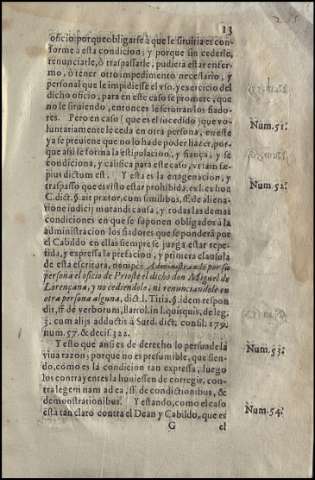 13
oficio porque obligarse à que se siruiria es con-
forme à esta condicion; y porque sin cederle,
renunciarle, ò traspassarle, pudiera estar enfer-
mo, ò tener otro impedimento necessario, y
personal que le impidiesse el vso, y exercicio del
dicho oficio, para en este caso se promete, que
no le siruiendo, entonces le seruiràn los fiado-
res.
Pero en caso (que es el sucedido) que vo-
Num. 51.
luntariamente le ceda en otra persona, en este
ya se preuiene que no lo ha de poder hazer, por-
que assi se forma la estipulacion, y fiança, y se
condiciona, y califica para este caso,
pius dictum est.
Y esta es la enagenacion, y
Num. 52.
traspasso que es visto estar prohibida, ex l. ex hoc
C. dict. §. ait prætor, cum similibus, ff. de aliena-
tione iudicij mutandi causa, y todas las demas
condiciones en que se suponen obligados à la
administracion los fiadores que se ponderà por
el Cabildo en ellas siempre se juzga estar repe-
tida, y expressa la prefacion, y primera clausula
de esta escritura, nempè: Administrando por su
persona el oficio de Pertiguero el dicho don Miguel de
Lorençana, y no cediendole, ni renunciandole en
otra persona alguna, dict. l. Titia, §. idem respon-
dit, ff. de verborum, Bartol. in l. quisquis, de leg.
3. cum alijs adductis à Surd. dict. consil. 179.
num. 57. & decis. 322.
Y esto que ansi es de derecho lo persuade la
Num. 53.
viua razon; porque no es presumible, que sien-
do, como es la condicion tan expressa, luego
los contrayentes la huuiessen de corregir, con-
tra legem nam ad ea, ff. de condictionibus, &
demonstrationibus.
Y estando, como el caso
Num. 54.
està tan claro contra el Dean y Cabildo, que es
G
el